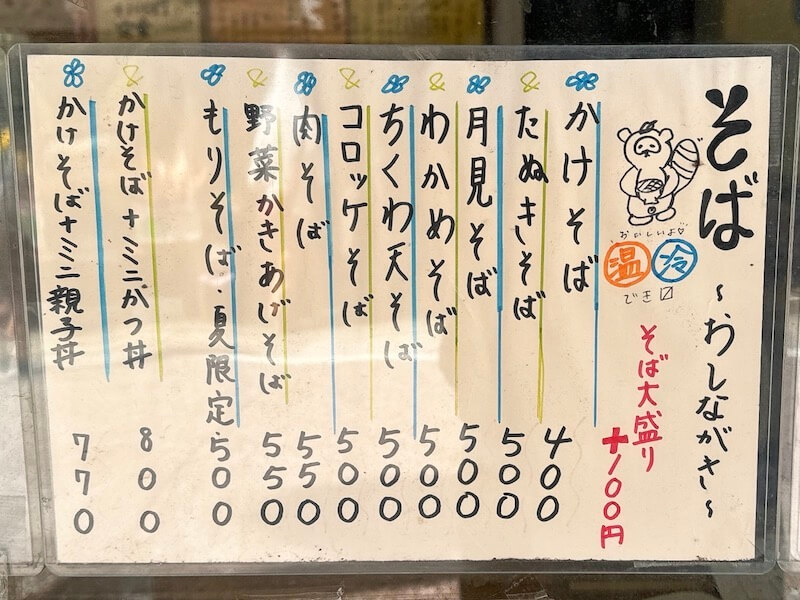 そば 〜おしながき〜
おいしいよ♡
温 冷
でき〼
そば大盛り +100円
かけそば 400
たぬきそば 500
月見そば 500
わかめそば 500
ちくわ天そば 500
コロッケそば 500
肉そば 550
野菜かきあげそば 550
もりそば・夏限定 500
かけそば+ミニかつ丼 800
かけそば+ミニ親子丼 770